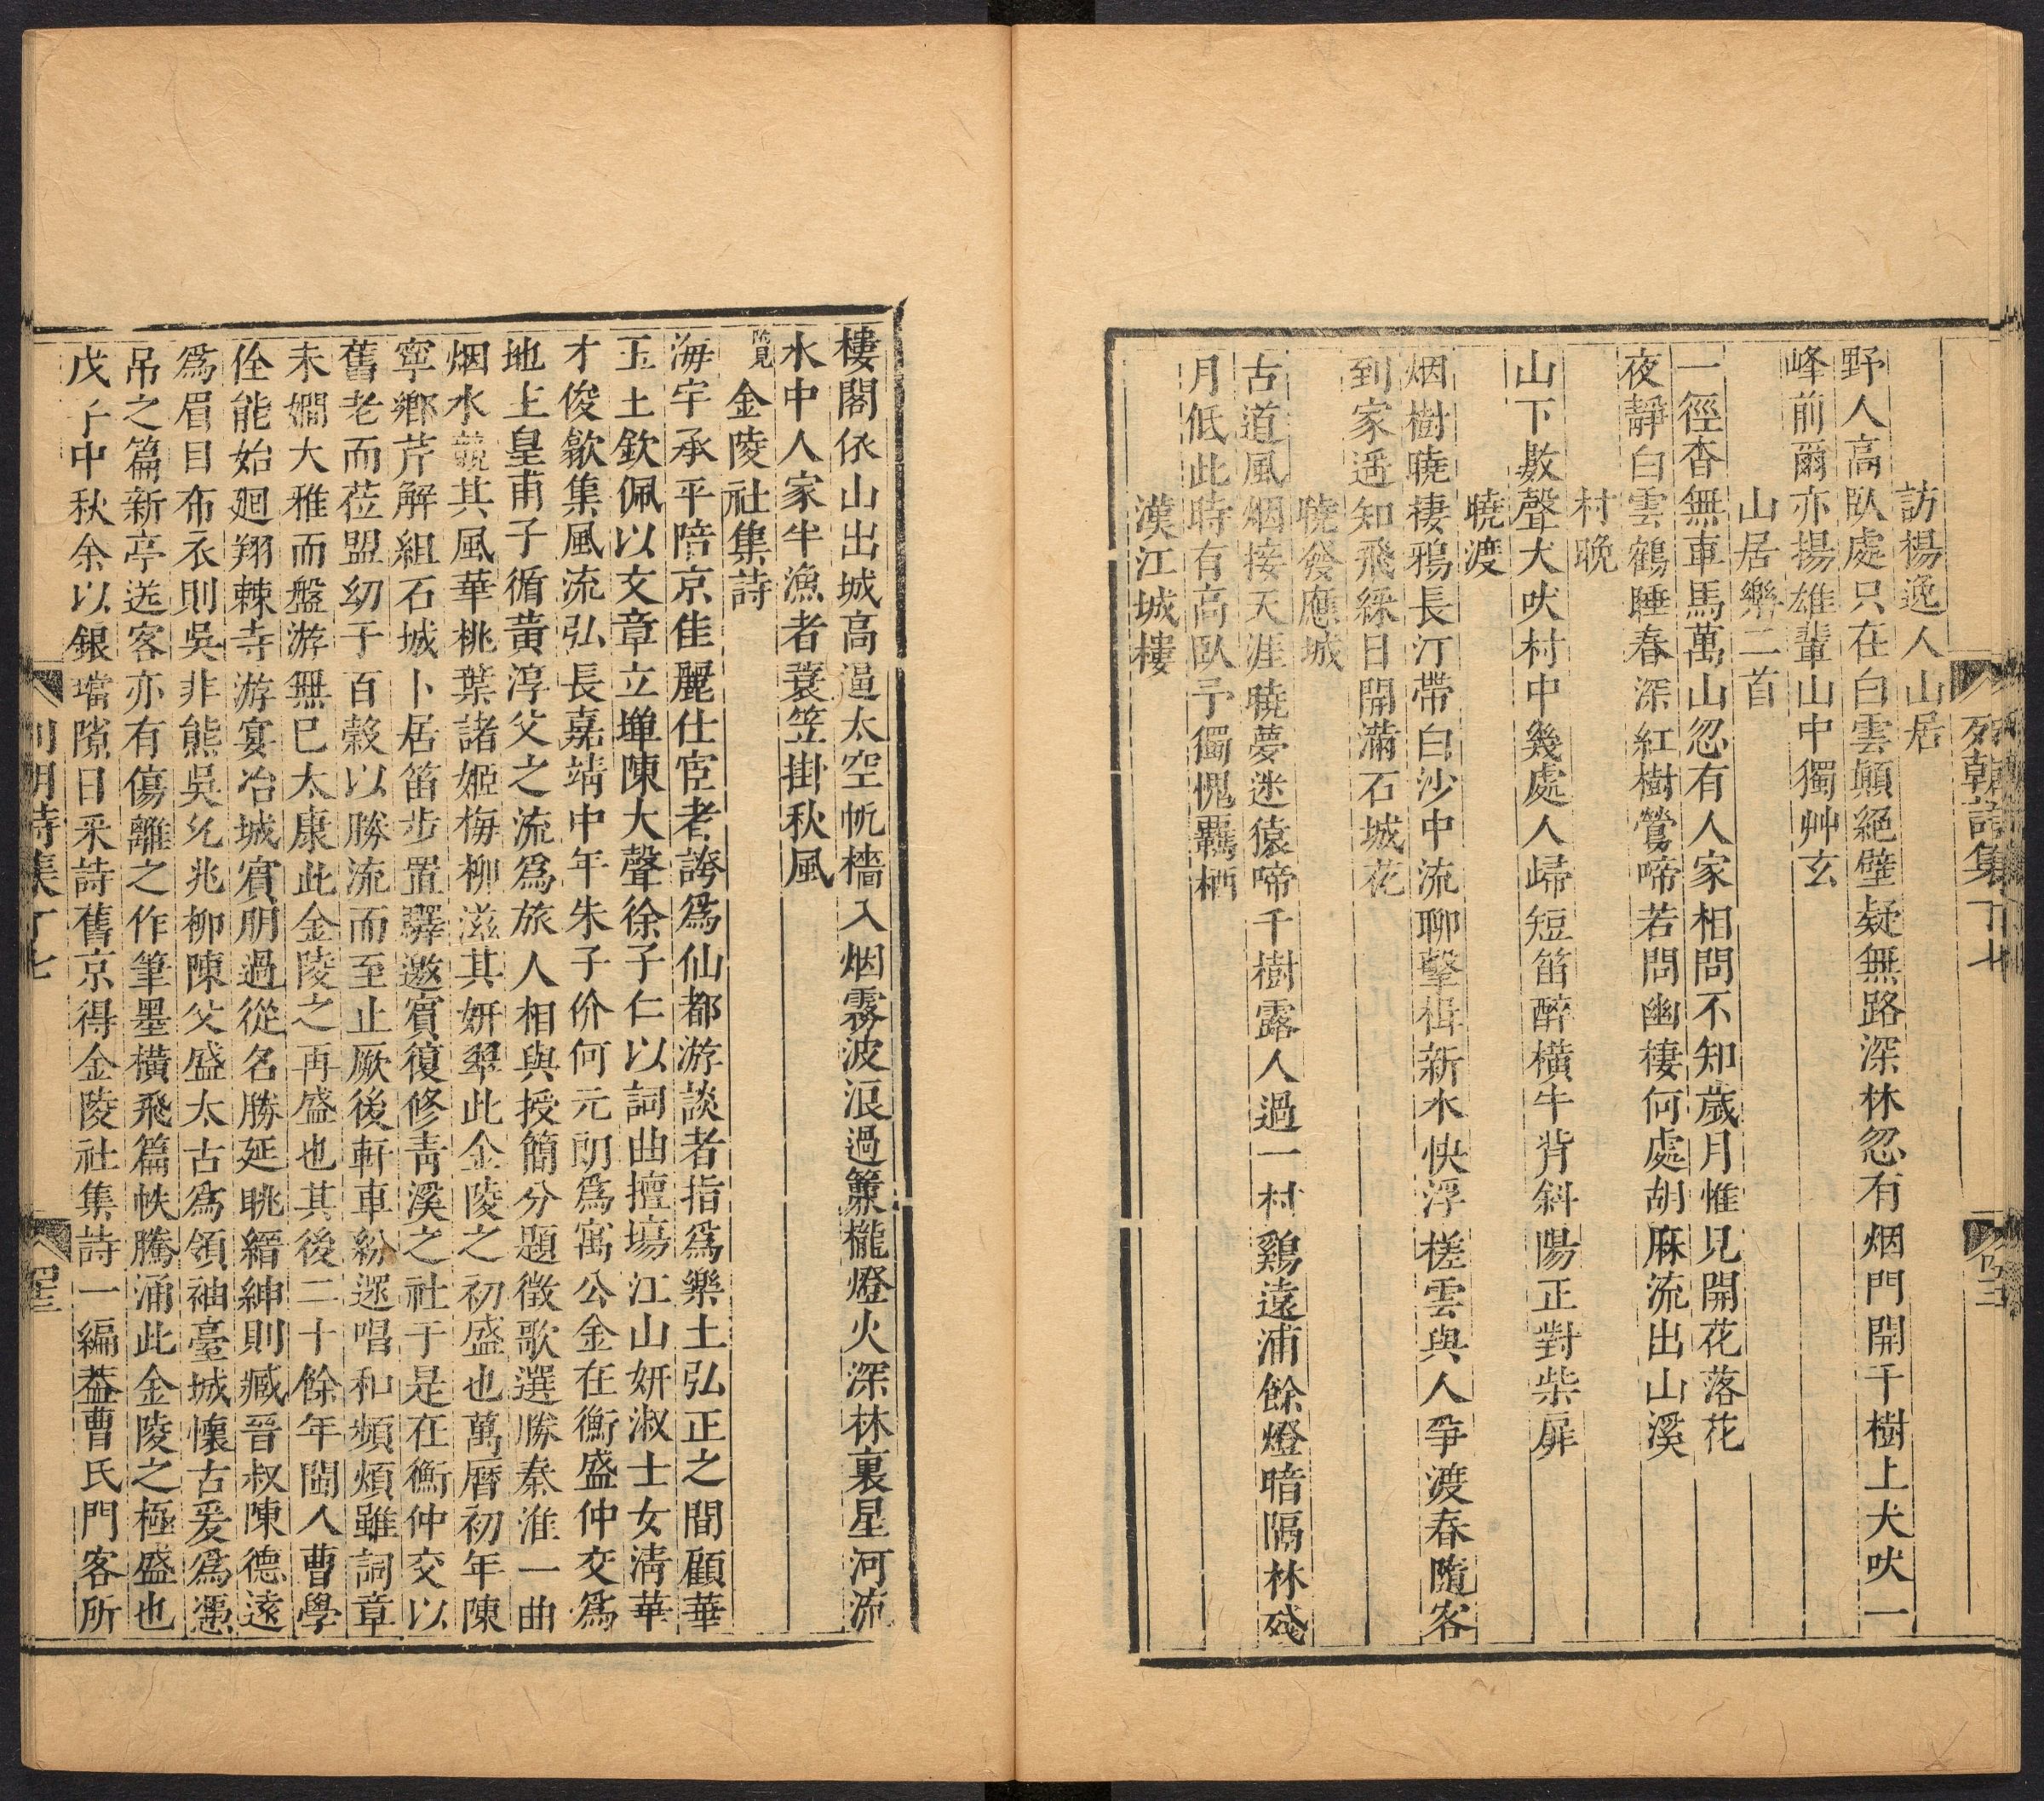 列朝詩集丁七
訪楊逸人山居
野人高臥處只在白雲顛絕壁疑無路深林忽有烟門開千樹上犬吠一
峰前爾亦揚雄輩山中獨艸玄
山居樂二首
一徑杳無車馬萬山忽有人家相問不知歲月惟見開花落花
夜靜白雲鶴睡春深紅樹鶯啼若問幽棲何處胡麻流出山溪
村晚
山下數聲犬吠村中幾處人歸短笛醉橫牛背斜陽正對柴扉
曉渡
烟樹曉棲鴉長汀帶白沙中流聊擊楫新水快浮槎雲與人爭渡春隨客
到家遥知飛綵日開滿石城花
曉發應城
古道風烟接天涯曉夢迷猿啼千樹露人過一村鷄遠浦餘燈暗隔林殘
月低此時有高臥予獨愧羈栖
漢江城樓
樓閣依山出城高逼太空帆檣入烟霧波浪過簾櫳燈火深林裏星河流
水中人家半漁者蓑笠掛秋風
附見 金陵社集詩
海宇承平陪京佳麗仕宦者誇爲仙都游談者指爲樂土弘正之間顧華
玉王欽佩以文章立墠陳大聲徐子仁以詞曲擅塲江山妍淑士女清華
才俊歙集風流弘長嘉靖中年朱子价何元朗爲寓公金在衡盛仲交爲
地上皇甫子循黄淳父之流爲旅人相與授簡分題徵歌選勝秦淮一曲
烟水競其風華桃葉諸姬梅柳滋其妍翠此金陵之初盛也萬曆初年陳
寧鄉芹解組石城卜居笛步置驛邀賓復修青溪之社于是在衡仲交以
舊老而莅盟幼于百穀以勝流而至止厥後軒車紛遝唱和頻煩雖詞章
未嫺大雅而盤游無已太康此金陵之再盛也其後二十餘年閩人曹學
佺能始廻翔棘寺游宴冶城賓朋過從名勝延眺縉紳則臧晉叔陳德遠
爲眉目布衣則吳非熊吳允兆柳陳父盛太古爲領袖臺城懷古爰爲憑
吊之篇新亭送客亦有傷離之作筆墨橫飛篇帙騰涌此金陵之極盛也
戊子中秋余以銀鐺隙日采詩舊京得金陵社集詩一編葢曹氏門客所
列朝詩集丁七